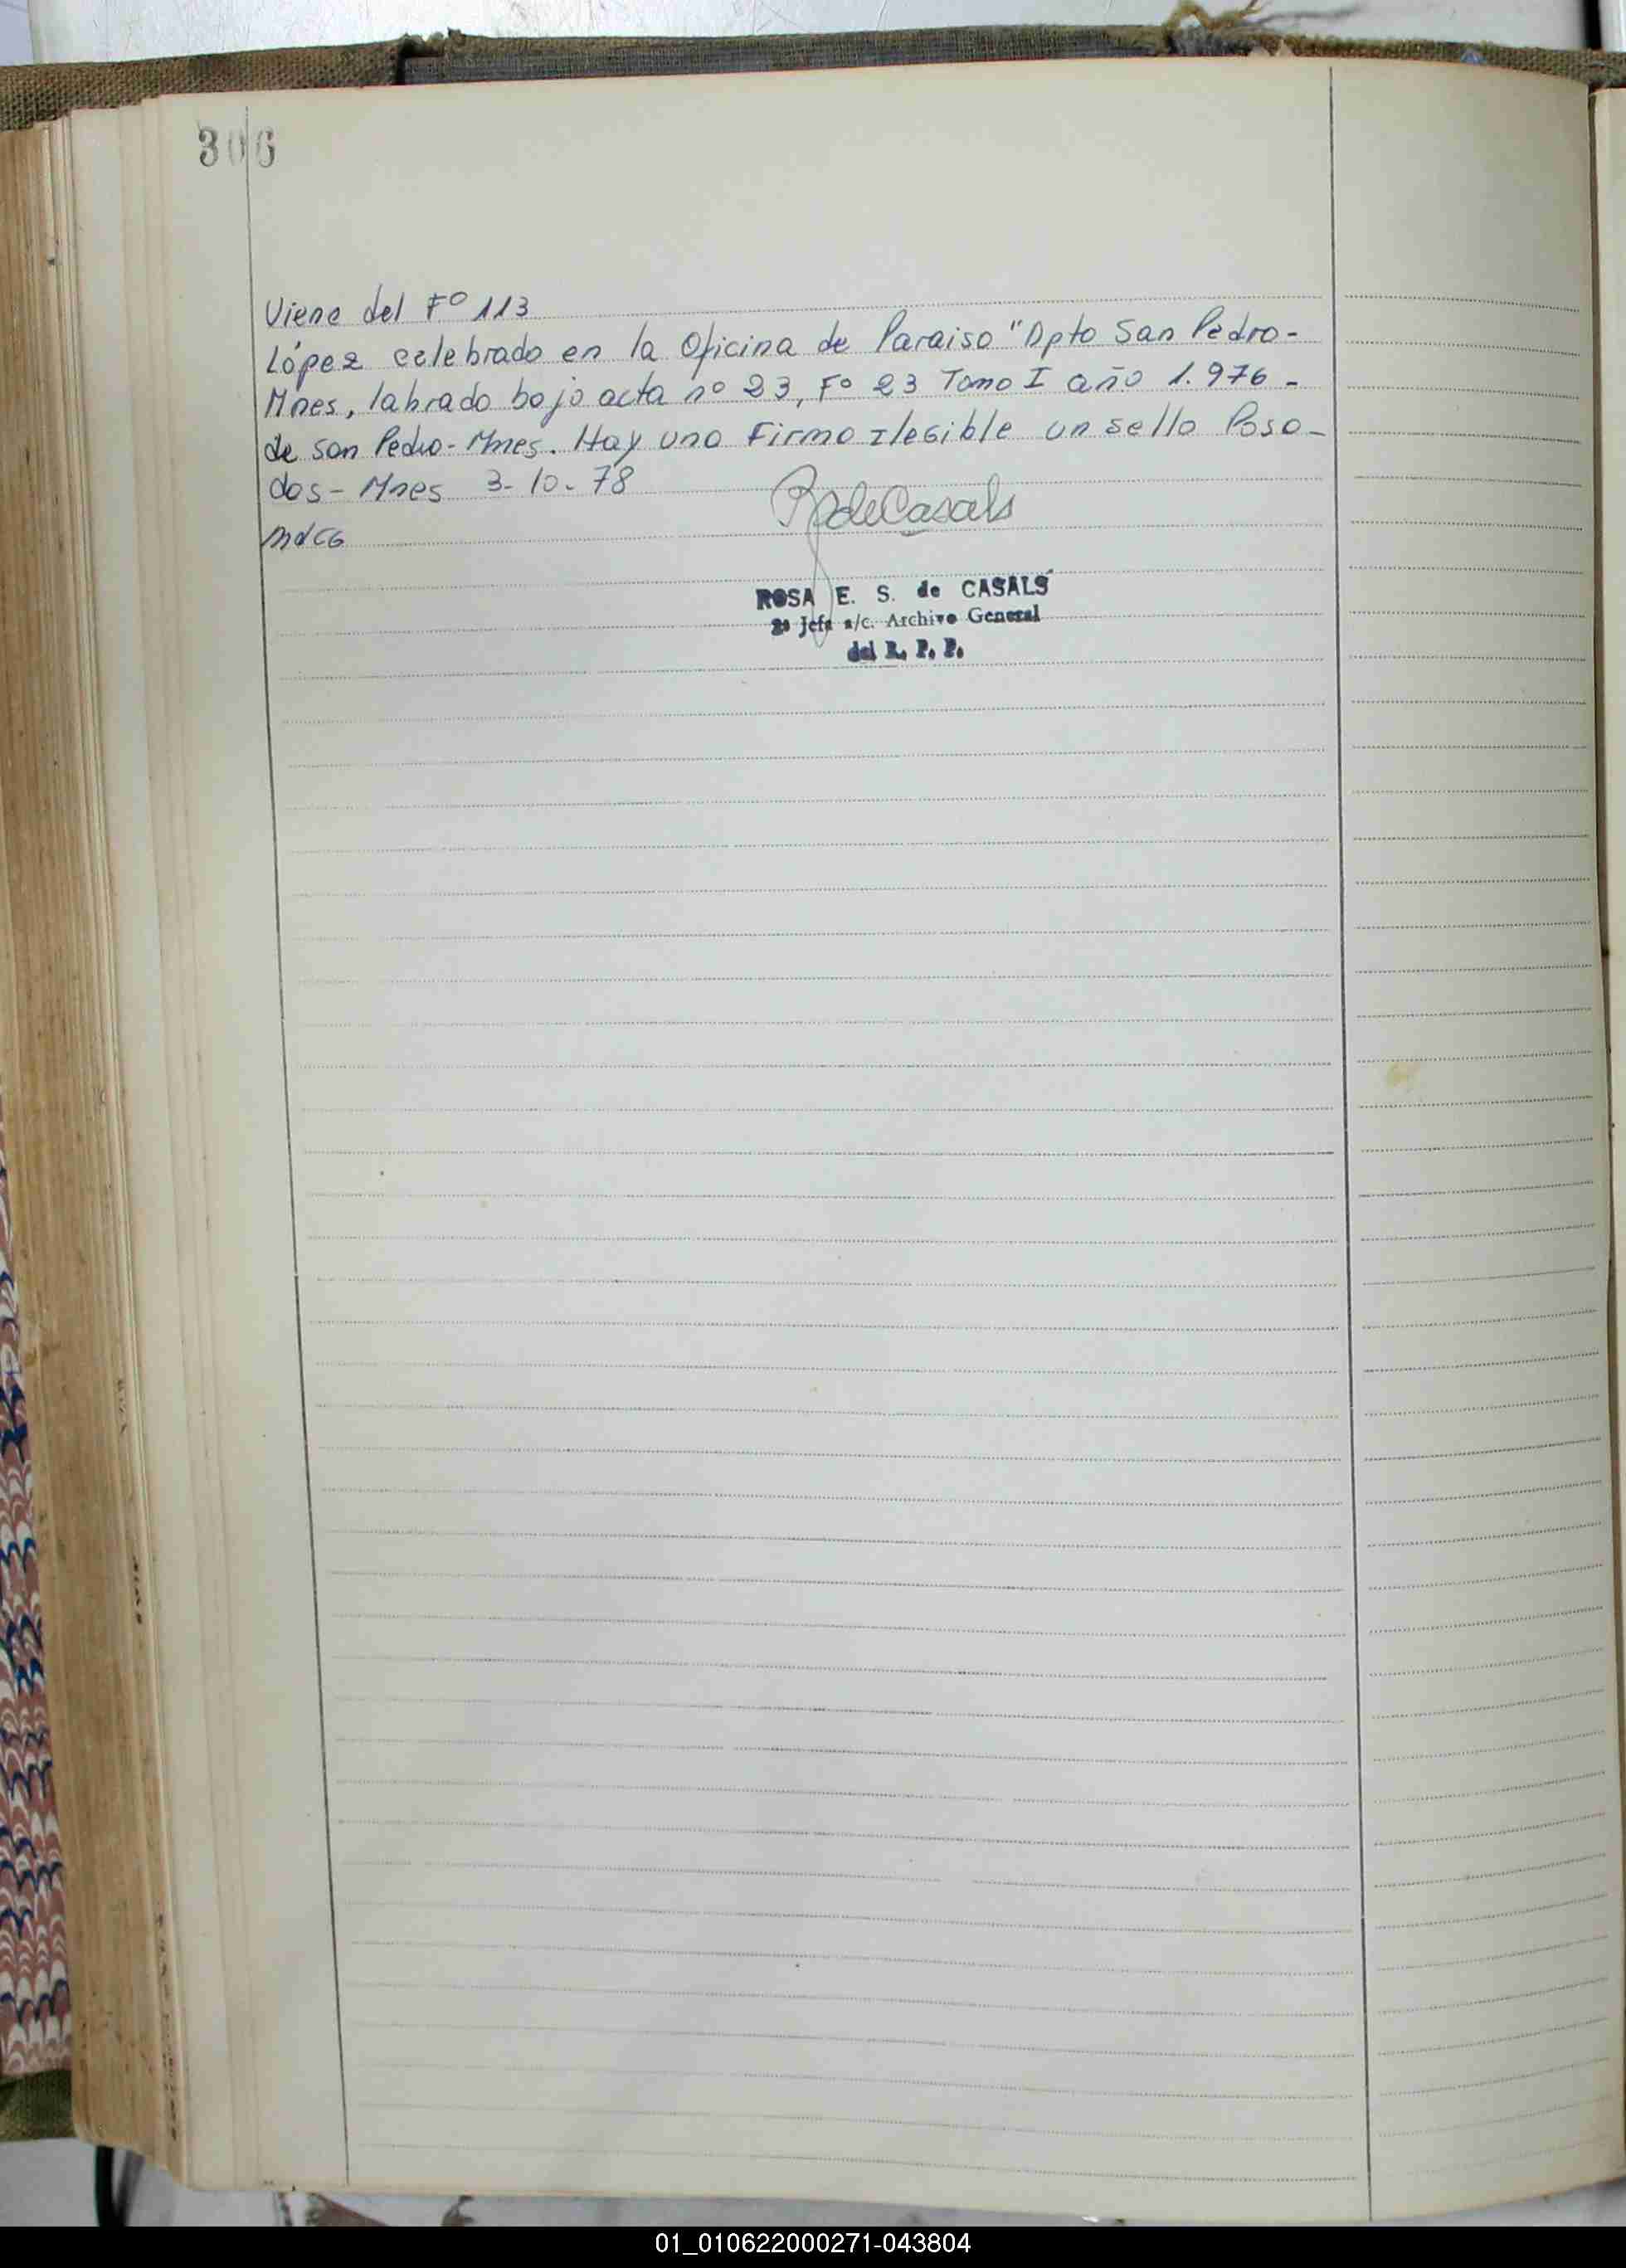 306
Viene del Fº 113
López celebrado en la Oficina de Paraiso "Dpto San Pedro-
Mnes, labrado bajo acta nº 23, Fº 23 Tomo I año 1.976-
de San Pedro-Mnes. Hay una Firma Ilegible un sello Posa-
das- Mnes 3-10-78
MdCG
RdeCasals
ROSA E. S. de CASALS
2ª Jefa a/c. Archivo General
del R. P. P.
01_010622000271-043804